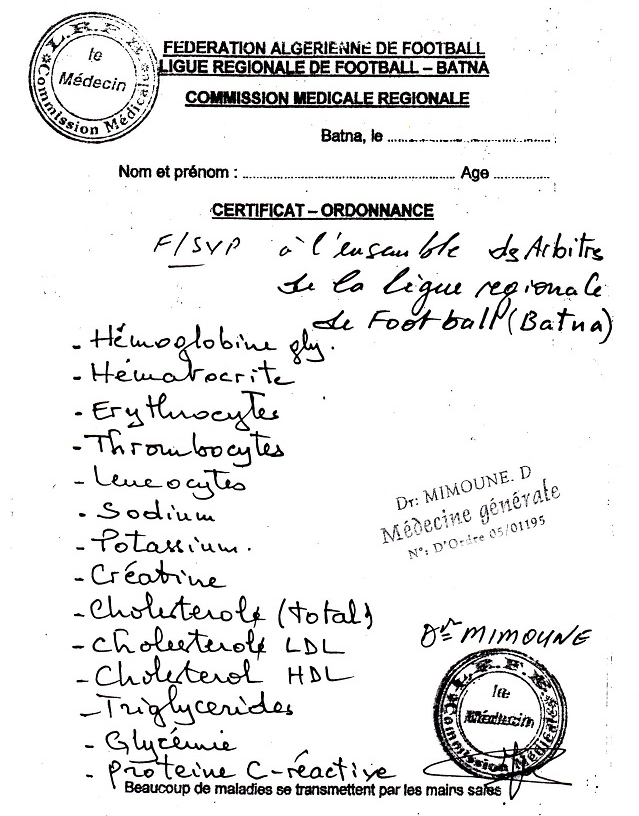 L.R.F.B
le
Médecin
Commission Médicale
FEDERATION ALGERIENNE DE FOOTBALL
LIGUE REGIONALE DE FOOTBALL – BATNA
COMMISSION MEDICALE REGIONALE
Batna, le ................................
Nom et prénom : ................................ Age ................
CERTIFICAT – ORDONNANCE
F/SVP à l'ensemble des Arbitres
de la ligue regionale
de Football (Batna)
- Hémoglobine gly.
- Hématocrite
- Erythrocytes
- Thrombocytes
- Leucocytes
- Sodium
- Potassium.
- Créatine
- Cholesterole (total)
- Cholesterole LDL
- Cholesterol HDL
- Triglycerides
- Glycémie
- Proteine C-réactive
Dr: MIMOUNE. D
Médecine générale
N°: D'Ordre 05/01195
Dr MIMOUNE
L.R.F.B
le
Médecin
Commission Médicale
Beaucoup de maladies se transmettent par les mains sales